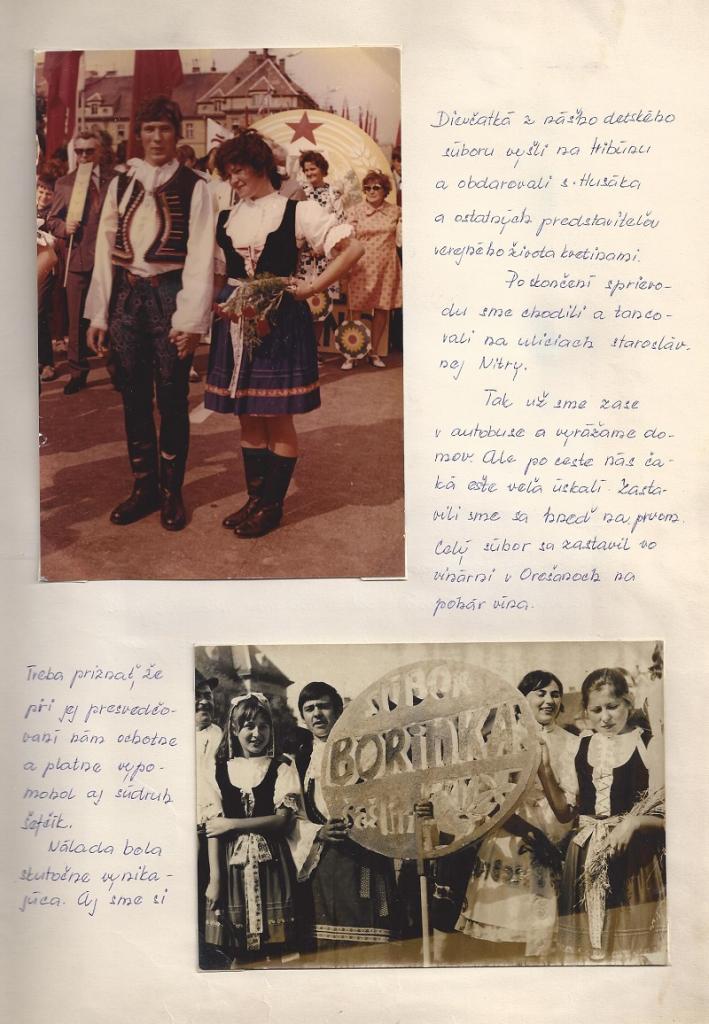 Dievčatká z nášho detského
súboru vyšli na tribúnu
a obdarovali s. Husáka
a ostatných predstaviteľov
verejného života kvetinami.
Po skončení sprievo-
du sme chodili a tanco-
vali na uliciach staroslav-
nej Nitry.
Tak už sme zase
v autobuse a vyrážame do-
mov. Ale po ceste nás ča-
ká ešte veľa úskalí. Zasta-
vili sme sa hneď na prvom.
Celý súbor sa zastavil vo
vinárni v Orešanoch na
pohár vína.
Treba priznať, že
pri jej presvedčo-
vaní nám ochotne
a platne vypo-
mohol aj súdruh
Šefčík.
Nálada bola
skutočne vynika-
júca. Aj sme si
SÚBOR
BORINKA